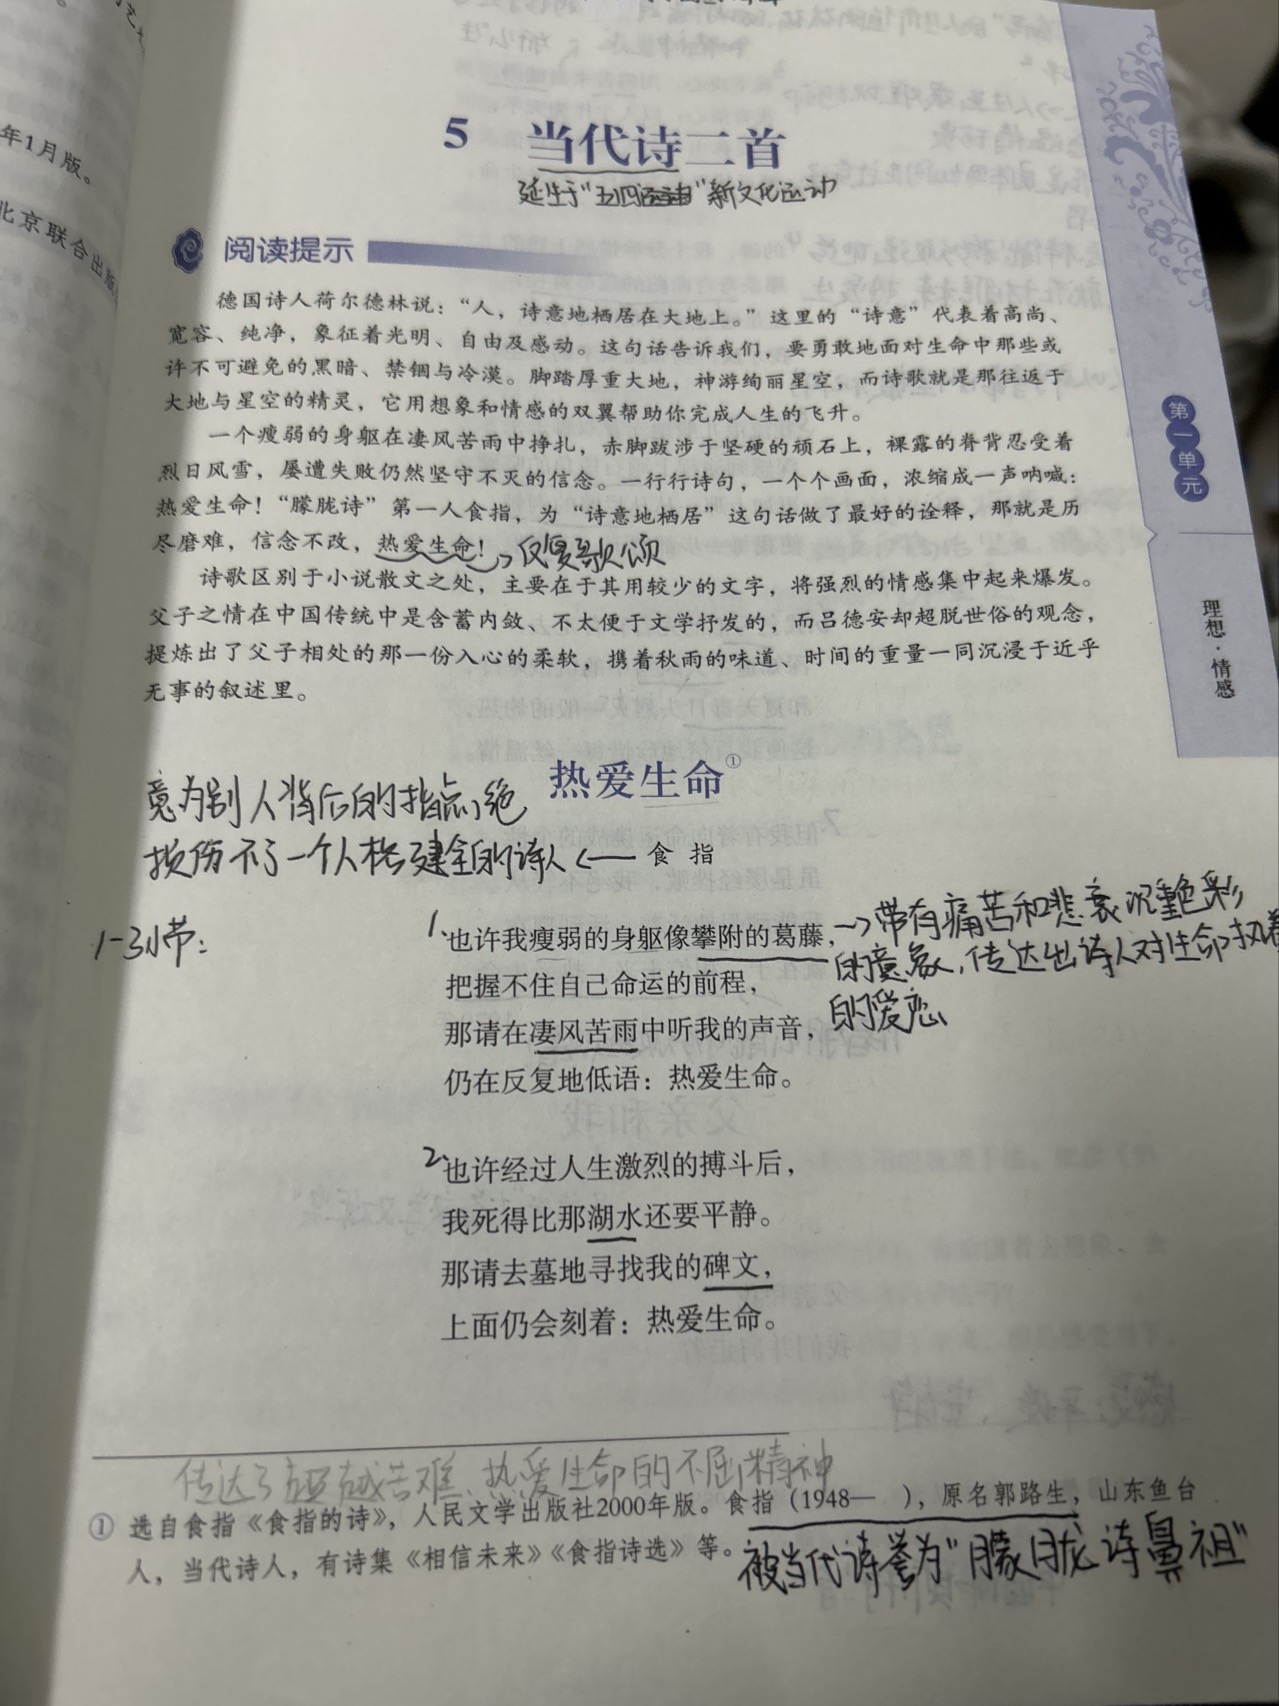 年1月版。
北京联合出版
5 当代诗二首
延生于“五四运动”新文化运动
阅读提示
德国诗人荷尔德林说：“人，诗意地栖居在大地上。”这里的“诗意”代表着高尚、
宽容、纯净，象征着光明、自由及感动。这句话告诉我们，要勇敢地面对生命中那些或
许不可避免的黑暗、禁锢与冷漠。脚踏厚重大地，神游绚丽星空，而诗歌就是那往返于
大地与星空的精灵，它用想象和情感的双翼帮助你完成人生的飞升。
一个瘦弱的身躯在凄风苦雨中挣扎，赤脚跋涉于坚硬的顽石上，裸露的脊背忍受着
烈日风雪，屡遭失败仍然坚守不灭的信念。一行行诗句，一个个画面，浓缩成一声呐喊：
热爱生命！“朦胧诗”第一人食指，为“诗意地栖居”这句话做了最好的诠释，那就是历
尽磨难，信念不改，热爱生命！→反复歌颂
诗歌区别于小说散文之处，主要在于其用较少的文字，将强烈的情感集中起来爆发。
父子之情在中国传统中是含蓄内敛、不太便于文学抒发的，而吕德安却超脱世俗的观念，
提炼出了父子相处的那一份入心的柔软，携着秋雨的味道、时间的重量一同沉浸于近乎
无事的叙述里。
第一单元
理想·情感
热爱生命①
意为别人背后的指点，绝
损伤不了一个人格健全的诗人 ← 食指
1-3小节：
1、也许我瘦弱的身躯像攀附的葛藤，→带有痛苦和悲哀沉重色彩
把握不住自己命运的前程，的意象，传达出诗人对生命执着
那请在凄风苦雨中听我的声音，的爱恋
仍在反复地低语：热爱生命。
2、也许经过人生激烈的搏斗后，
我死得比那湖水还要平静。
那请去墓地寻找我的碑文，
上面仍会刻着：热爱生命。
传达了超越苦难、热爱生命的不屈精神
① 选自食指《食指的诗》，人民文学出版社2000年版。食指（1948— ），原名郭路生，山东鱼台
人，当代诗人，有诗集《相信未来》《食指诗选》等。
被当代诗誉为“朦胧诗鼻祖”